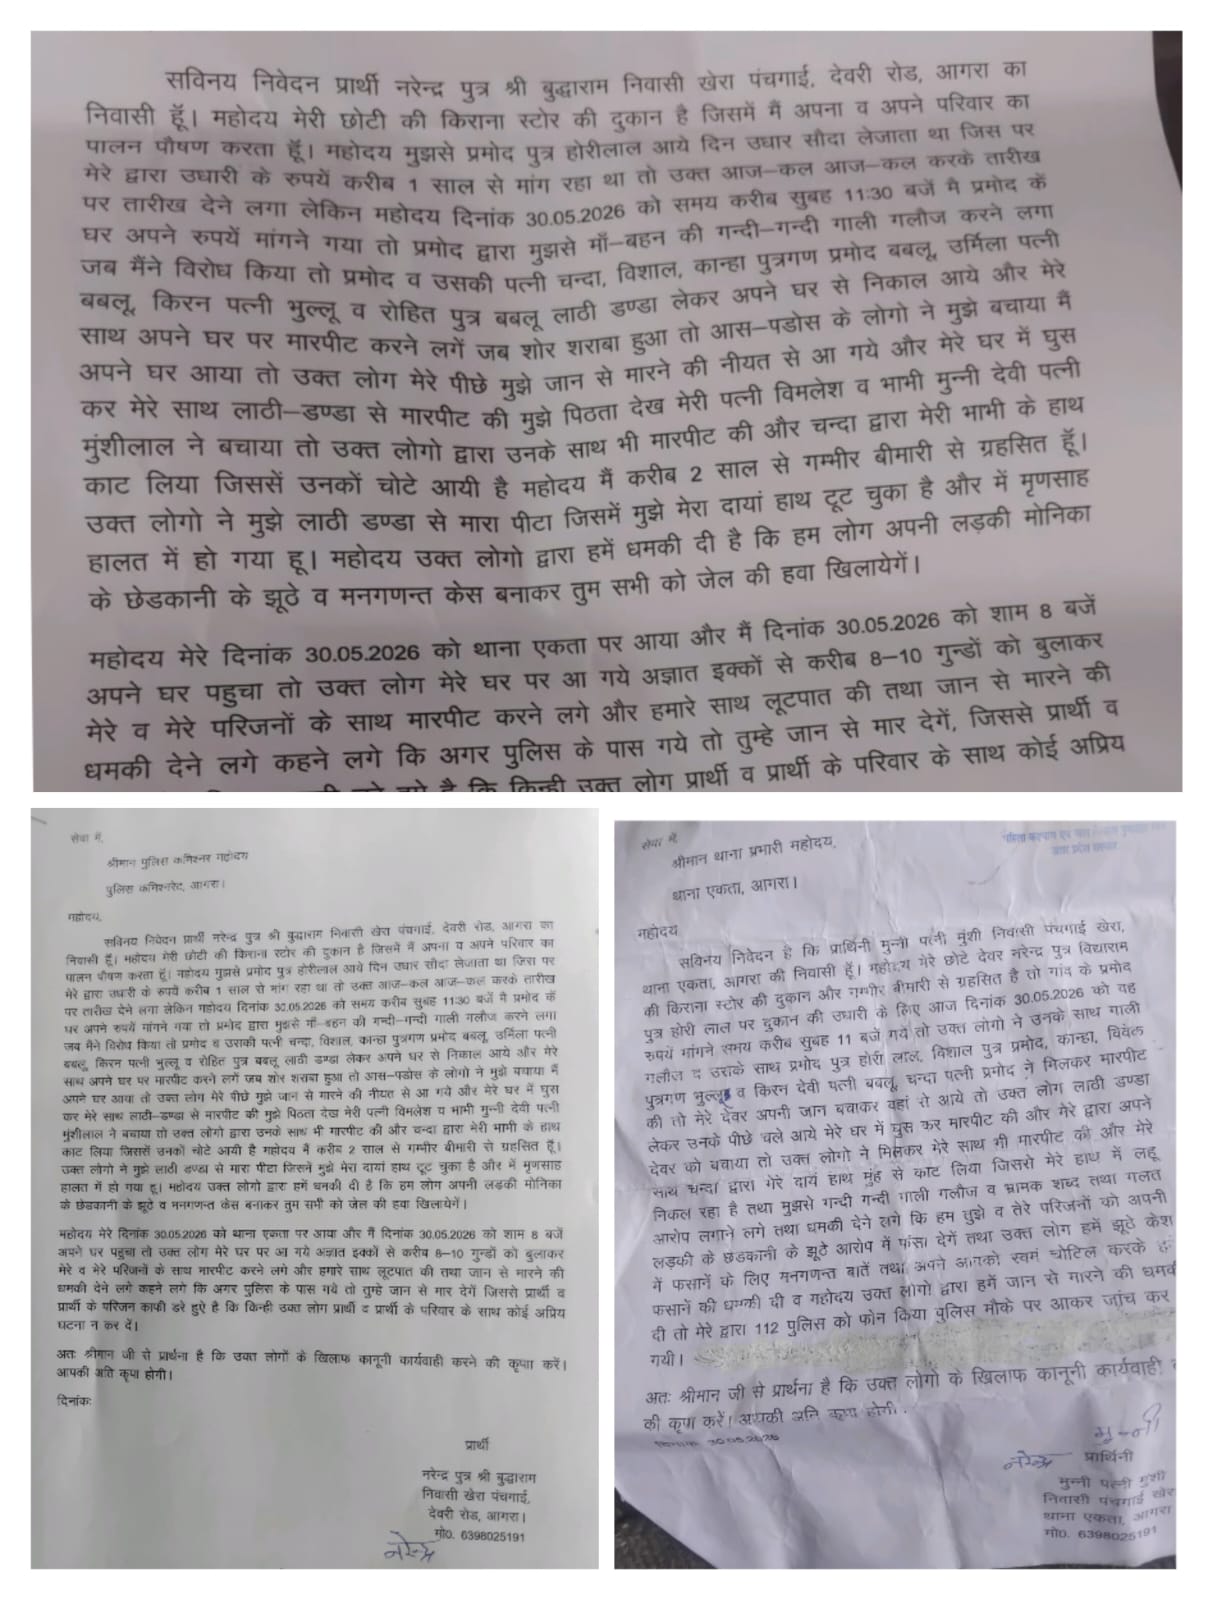 सविनय निवेदन प्रार्थी नरेन्द्र पुत्र श्री बुद्धाराम निवासी खेरा पंचगाई, देवरी रोड, आगरा का
निवासी हूॅ। महोदय मेरी छोटी की किराना स्टोर की दुकान है जिसमें मैं अपना व अपने परिवार का
पालन पौषण करता हूॅ। महोदय मुझसे प्रमोद पुत्र होरीलाल आये दिन उधार सौदा लेजाता था जिस पर
मेरे द्वारा उधारी के रुपयें करीब 1 साल से मांग रहा था तो उक्त आज–कल आज–कल करके तारीख
पर तारीख देने लगा लेकिन महोदय दिनांक 30.05.2026 को समय करीब सुबह 11:30 बजें मै प्रमोद कें
घर अपने रुपयें मांगने गया तो प्रमोद द्वारा मुझसे माँ–बहन की गन्दी–गन्दी गाली गलौज करने लगा
जब मैंने विरोध किया तो प्रमोद व उसकी पत्नी चन्दा, विशाल, कान्हा पुत्रगण प्रमोद बबलू, उर्मिला पत्नी
बबलू, किरन पत्नी भुल्लू व रोहित पुत्र बबलू लाठी डण्डा लेकर अपने घर से निकाल आये और मेरे
साथ अपने घर पर मारपीट करने लगें जब शोर शराबा हुआ तो आस–पडोस के लोगो ने मुझे बचाया मैं
अपने घर आया तो उक्त लोग मेरे पीछे मुझे जान से मारने की नीयत से आ गये और मेरे घर में घुस
कर मेरे साथ लाठी–डण्डा से मारपीट की मुझे पिठता देख मेरी पत्नी विमलेश व भाभी मुन्नी देवी पत्नी
मुंशीलाल ने बचाया तो उक्त लोगो द्वारा उनके साथ भी मारपीट की और चन्दा द्वारा मेरी भाभी के हाथ
काट लिया जिससें उनकों चोटे आयी है महोदय मैं करीब 2 साल से गम्भीर बीमारी से ग्रहसित हूॅ।
उक्त लोगो ने मुझे लाठी डण्डा से मारा पीटा जिसमें मुझे मेरा दायां हाथ टूट चुका है और में मृणसाह
हालत में हो गया हू। महोदय उक्त लोगो द्वारा हमें धमकी दी है कि हम लोग अपनी लड़की मोनिका
के छेडकानी के झूठे व मनगणन्त केस बनाकर तुम सभी को जेल की हवा खिलायेगें।
महोदय मेरे दिनांक 30.05.2026 को थाना एकता पर आया और मैं दिनांक 30.05.2026 को शाम 8 बजें
अपने घर पहुचा तो उक्त लोग मेरे घर पर आ गये अज्ञात इक्कों से करीब 8–10 गुन्डों को बुलाकर
मेरे व मेरे परिजनों के साथ मारपीट करने लगे और हमारे साथ लूटपात की तथा जान से मारने की
धमकी देने लगे कहने लगे कि अगर पुलिस के पास गये तो तुम्हे जान से मार देगें, जिससे प्रार्थी व
है कि किन्ही उक्त लोग प्रार्थी व प्रार्थी के परिवार के साथ कोई अप्रिय
सेवा में,
श्रीमान पुलिस कमिश्नर महोदय
पुलिस कमिश्नरेट, आगरा।
महोदय,
सविनय निवेदन प्रार्थी नरेन्द्र पुत्र श्री बुद्धाराम निवासी खेरा पंचगाई, देवरी रोड, आगरा का
निवासी हूॅ। महोदय मेरी छोटी की किराना स्टोर की दुकान है जिसमें मैं अपना व अपने परिवार का
पालन पौषण करता हूॅ। महोदय मुझसे प्रमोद पुत्र होरीलाल आये दिन उधार सौदा लेजाता था जिस पर
मेरे द्वारा उधारी के रुपयें करीब 1 साल से मांग रहा था तो उक्त आज–कल आज–कल करके तारीख
पर तारीख देने लगा लेकिन महोदय दिनांक 30.05.2026 को समय करीब सुबह 11:30 बजें मै प्रमोद कें
घर अपने रुपयें मांगने गया तो प्रमोद द्वारा मुझसे माँ–बहन की गन्दी–गन्दी गाली गलौज करने लगा
जब मैंने विरोध किया तो प्रमोद व उसकी पत्नी चन्दा, विशाल, कान्हा पुत्रगण प्रमोद बबलू, उर्मिला पत्नी
बबलू, किरन पत्नी भुल्लू व रोहित पुत्र बबलू लाठी डण्डा लेकर अपने घर से निकाल आये और मेरे
साथ अपने घर पर मारपीट करने लगें जब शोर शराबा हुआ तो आस–पडोस के लोगो ने मुझे बचाया मैं
अपने घर आया तो उक्त लोग मेरे पीछे मुझे जान से मारने की नीयत से आ गये और मेरे घर में घुस
कर मेरे साथ लाठी–डण्डा से मारपीट की मुझे पिठता देख मेरी पत्नी विमलेश व भाभी मुन्नी देवी पत्नी
मुंशीलाल ने बचाया तो उक्त लोगो द्वारा उनके साथ भी मारपीट की और चन्दा द्वारा मेरी भाभी के हाथ
काट लिया जिससें उनकों चोटे आयी है महोदय मैं करीब 2 साल से गम्भीर बीमारी से ग्रहसित हूॅ।
उक्त लोगो ने मुझे लाठी डण्डा से मारा पीटा जिसमें मुझे मेरा दायां हाथ टूट चुका है और में मृणसाह
हालत में हो गया हू। महोदय उक्त लोगो द्वारा हमें धमकी दी है कि हम लोग अपनी लड़की मोनिका
के छेडकानी के झूठे व मनगणन्त केस बनाकर तुम सभी को जेल की हवा खिलायेगें।
महोदय मेरे दिनांक 30.05.2026 को थाना एकता पर आया और मैं दिनांक 30.05.2026 को शाम 8 बजें
अपने घर पहुचा तो उक्त लोग मेरे घर पर आ गये अज्ञात इक्कों से करीब 8–10 गुन्डों को बुलाकर
मेरे व मेरे परिजनों के साथ मारपीट करने लगे और हमारे साथ लूटपात की तथा जान से मारने की
धमकी देने लगे कहने लगे कि अगर पुलिस के पास गये तो तुम्हे जान से मार देगें जिससे प्रार्थी व
प्रार्थी के परिजन काफी डरे हुऐ है कि किन्ही उक्त लोग प्रार्थी व प्रार्थी के परिवार के साथ कोई अप्रिय
घटना न कर दें।
अतः श्रीमान जी से प्रार्थना है कि उक्त लोगों के खिलाफ कानूनी कार्यवाही करने की कृपा करें।
आपकी अति कृपा होगी।
दिनांकः
प्रार्थी
नरेन्द्र पुत्र श्री बुद्धाराम
निवासी खेरा पंचगाई,
देवरी रोड, आगरा।
मो0. 6398025191
नरेन्द्र
सेवा में,
श्रीमान थाना प्रभारी महोदय,
थाना एकता, आगरा।
महोदय
सविनय निवेदन है कि प्रार्थिनी मुन्नी पत्नी मुंशी निवासी पंचगाई खेरा,
थाना एकता, आगरा की निवासी हूॅ। महोदय मेरे छोटे देवर नरेन्द्र पुत्र विद्याराम
की किराना स्टोर की दुकान और गम्भीर बीमारी से ग्रहसित है तो गांव के प्रमोद
पुत्र होरी लाल पर दुकान की उधारी के लिए आज दिनांक 30.05.2026 को वह
रुपयें मांगने समय करीब सुबह 11 बजें गये तो उक्त लोगो ने उनके साथ गाली
गलौज व उसके साथ प्रमोद पुत्र होरी लाल, विशाल पुत्र प्रमोद, कान्हा, विवेक
पुत्रगण भुल्लू व किरन देवी पत्नी बबलू, चन्दा पत्नी प्रमोद ने मिलकर मारपीट
की तो मेरे देवर अपनी जान बचाकर वहां से आये तो उक्त लोग लाठी डण्डा
लेकर उनके पीछे चले आये मेरे घर में घुस कर मारपीट की और मेरे द्वारा अपने
देवर को बचाया तो उक्त लोगो ने मिलकर मेरे साथ भी मारपीट की और मेरे
साथ चन्दा द्वारा मेरे दायं हाथ मुंह से काट लिया जिससे मेरे हाथ में लहू
निकल रहा है तथा मुझसे गन्दी गन्दी गाली गलौज व भ्रामक शब्द तथा गलत
आरोप लगाने लगे तथा धमकी देने लगे कि हम तुझे व तेरे परिजनों को अपनी
लड़की के छेडकानी के झूठे आरोप में फंसा देगें तथा उक्त लोग हमें झूठे केश
में फसानें के लिए मनगणन्त बातें तथा अपने आपको स्वमं चोटिल करके
फसानें की धमकी दी व महोदय उक्त लोगो द्वारा हमें जान से मारने की धमकी
दी तो मेरे द्वारा 112 पुलिस को फोन किया पुलिस मौके पर आकर जांच कर
गयी।
अतः श्रीमान जी से प्रार्थना है कि उक्त लोगो के खिलाफ कानूनी कार्यवाही
की कृपा करें। आपकी अति कृपा होगी।
दिनांक 30.05.2026
मुन्नी
नरेन्द्र
प्रार्थिनी
मुन्नी पत्नी मुंशी
निवासी पंचगाई खेरा
थाना एकता, आगरा
मो0. 6398025191